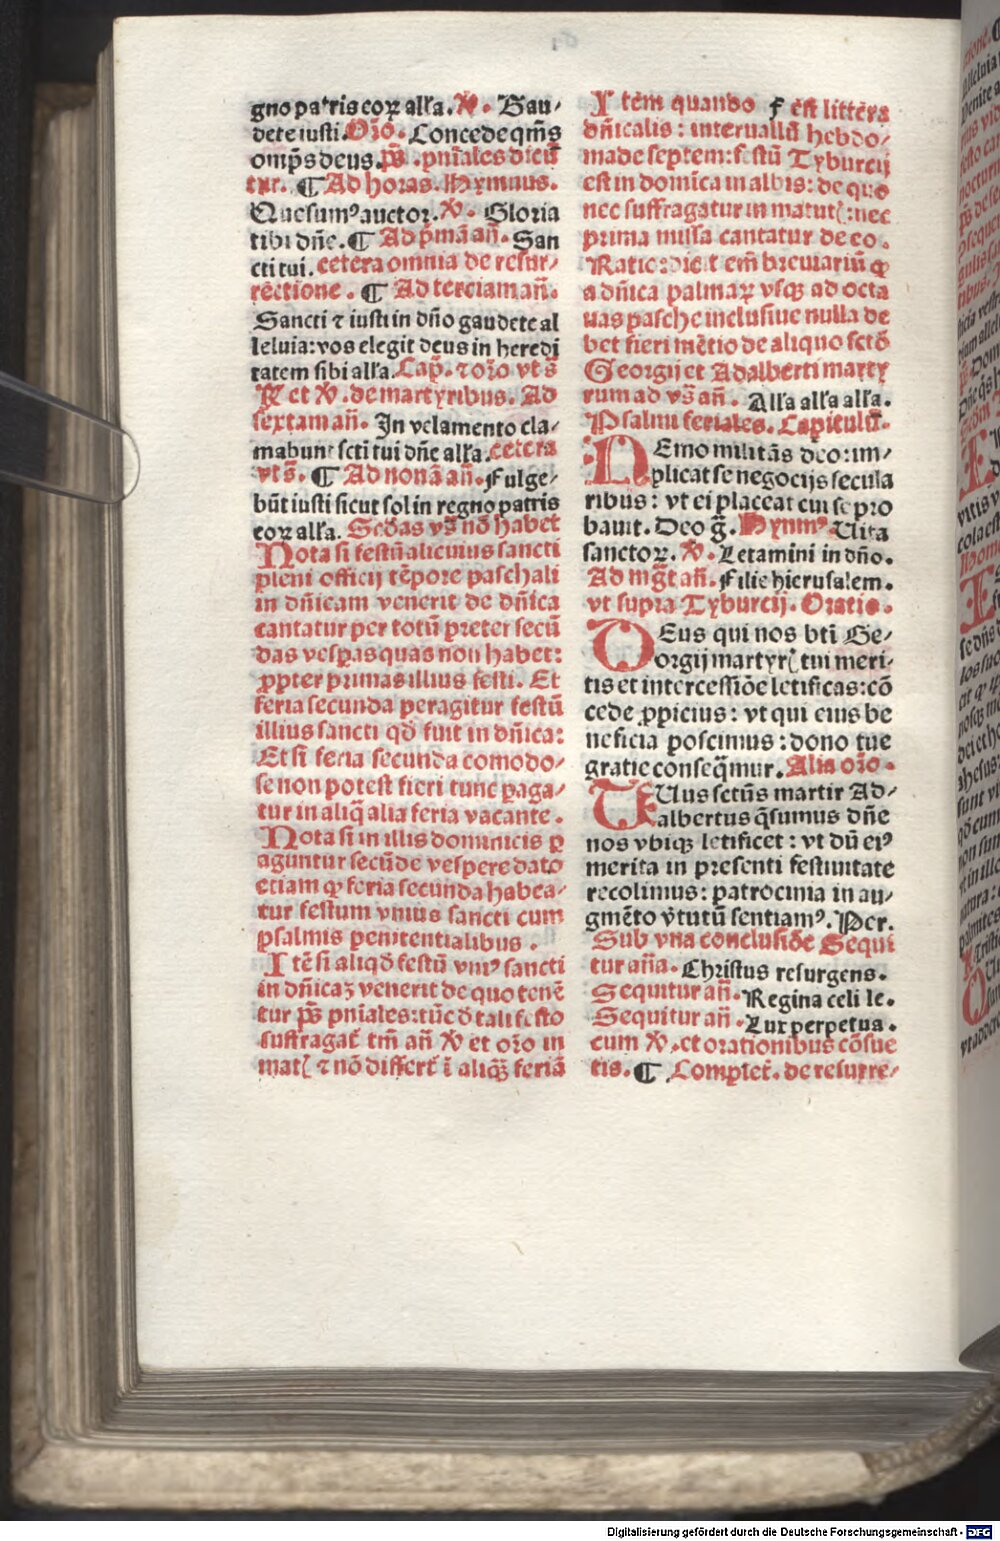 gno patris eoꝝ alľa. ℣. Gau⸗
dete iusti. Orō. Concede q̄m̄s
omp̄s deus. p̄s. pn̄iales dicū
tur. ¶ Ad horas. Hymnus.
Quesumꝰ auctor. ℣. Gloria
tibi dn̄e. ¶ Ad p̄mā an̄. San
cti tui. cetera omnia de resur⸗
rectione. ¶ Ad terciam an̄.
Sancti ⁊ iusti in dn̄o gaudete al
leluia: vos elegit deus in heredi
tatem sibi alľa. Cap̄. ⁊ orō vt s̄
℟ et ℣. de martyribus. Ad
sextam an̄. In velamento cla⸗
mabunt scti tui dn̄e alľa. cetera
vt s̄. ¶ Ad nonā an̄. Fulge⸗
būt iusti sicut sol in regno patris
eoꝝ alľa. Scd̄as vs̄ nō habet
Nota si festū alicuius sancti
pleni officij tēpore paschali
in dn̄icam venerit de dn̄ica
cantatur per totū preter secū
das vesp̄as quas non habet:
ꝓpter primas illius festi. Et
feria secunda peragitur festū
illius sancti qd̄ fuit in dn̄ica:
Et si feria secunda comodo⸗
se non potest fieri tunc ꝑaga⸗
tur in aliq̄ alia feria vacante.
Nota si in illis dominicis ꝑ
aguntur secūde vespere dato
etiam ꝙ feria secunda habea⸗
tur festum vnius sancti cum
psalmis penitentialibus.
Itē si aliqd̄ festū vniꝰ sancti
in dn̄icaꝫ venerit de quo tenē
tur p̄s pn̄iales: tūc d̄ tali festo
suffragat̄ tm̄ an̄ ℣ et orō in
mat̄ ⁊ nō differt̄ ī aliq̄ꝫ feriā
Item quando f est littera
dn̄icalis: interuallū hebdo⸗
made septem: festū Tyburcij
est in domīca in albis: de quo
nec suffragatur in matut̄: nec
prima missa cantatur de eo.
Ratio: dicit em̄ breuiariū ꝙ
a dn̄ica palmaꝝ vsqꝫ ad octa
uas pasche inclusiue nulla de
bet fieri mētio de aliquo sctō
Georgij et Adalberti marty
rum ad vs̄ an̄. Alľa alľa alľa.
Psalmi feriales. Capitulū.
NEmo militās deo: im⸗
plicat se negocijs secula
ribus: vt ei placeat cui se pro
bauit. Deo ḡ. Hymꝰ. Uita
sanctoꝝ. ℣. Letamini in dn̄o.
Ad mḡt an̄. Filie hierusalem.
vt supra Tyburcij. Oratio.
DEus qui nos bt̄i Ge⸗
orgij martyrꝭ tui meri⸗
tis et intercessiōe letificas: cō
cede ꝓpicius: vt qui eius be
neficia poscimus: dono tue
gratie conseq̄mur. Alia orō.
TUus sctūs martir Ad⸗
albertus q̄sumus dn̄e
nos vbiqꝫ letificet: vt dū eiꝰ
merita in presenti festiuitate
recolimus: patrocinia in au⸗
gmēto v̄tutū sentiamꝰ. Per.
Sub vna conclusiōe Sequi
tur an̄a. Christus resurgens.
Sequitur an̄. Regina celi le.
Sequitur an̄. Lux perpetua.
cum ℣. et orationibus cōsue
tis. ¶ Complet̄. de resurre⸗
Digitalisierung gefördert durch die Deutsche Forschungsgemeinschaft - DFG